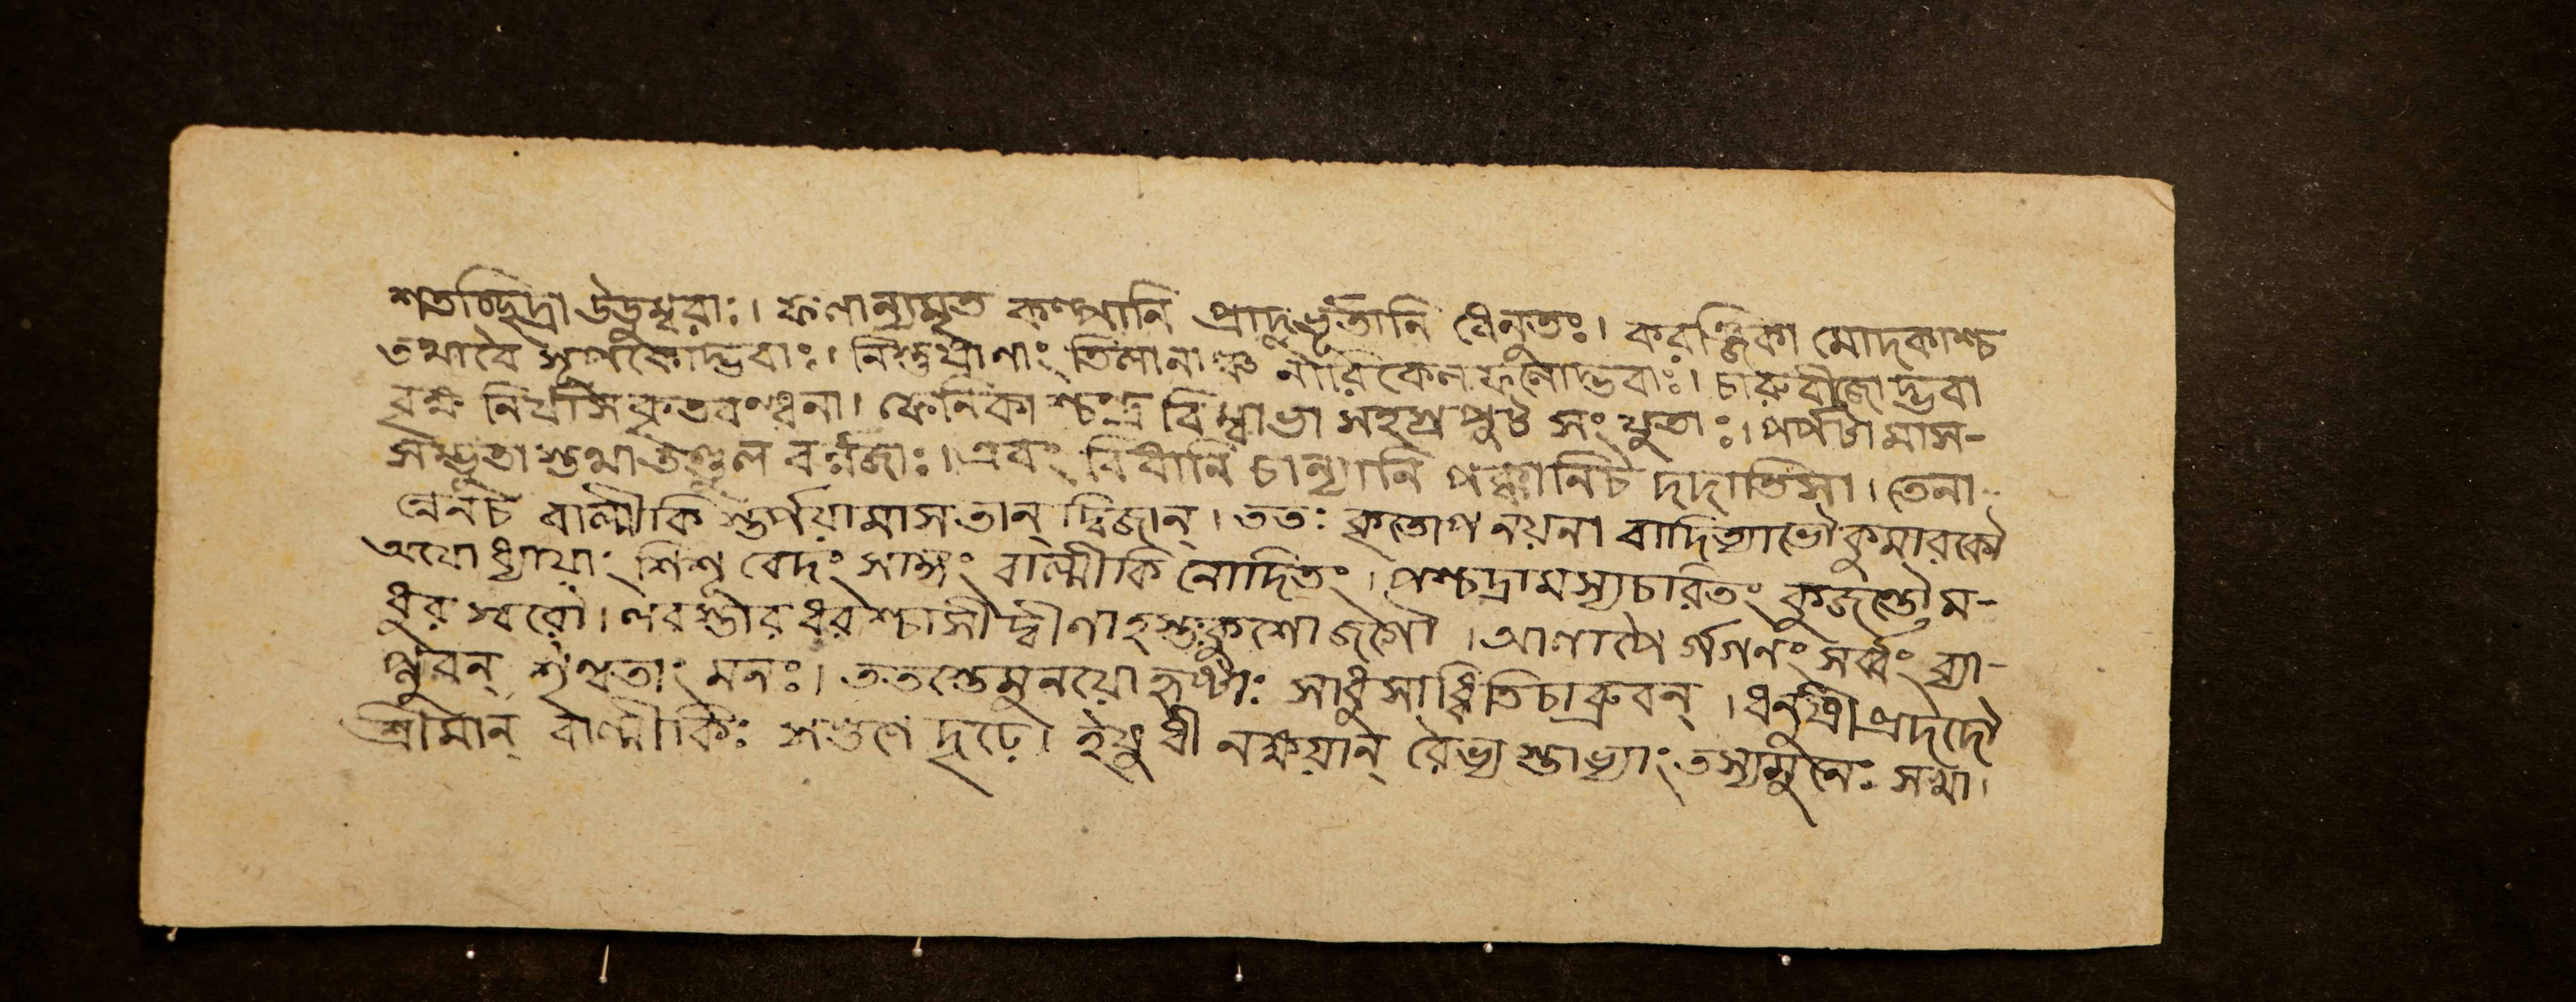 শতচ্ছিদ্রা উডুম্বরাঃ। ফলান্যমৃত কল্পানি প্রাদুর্ভূতানি ধেনুতঃ। করঞ্জিকা মোদকাশ্চ
তথাবৈ সূপকোদ্ভবাঃ। নিস্তুষাণাং তিলানাঞ্চ নারিকেল ফলোদ্ভবাঃ। চারুবীজোদ্ভবা
ব্রহ্ম নির্যাস কৃতবন্ধনা। ফেনিকা শ্চন্দ্র বিম্বাভা সহস্র পুট সংযুতাঃ। পর্পটা মাস-
সম্ভূতা স্তথা তণ্ডুল বর্ণজাঃ। এবং বিধানি চান্যানি পক্বানিচ দদাতিসা। তেনা-
ন্নেনচ বাল্মীকি স্তর্পয়ামাস তান্ দ্বিজান্। ততঃ কৃতোপনয়না বাদিত্যাভৌ কুমারকৌ
অযোধ্যায়াং শিশূ বেদং সাঙ্গং বাল্মীকি নোদিতং। পশ্চদ্রামস্যচরিতং কুজন্তৌ ম-
ধুর স্বরৌ। লবস্তার ধরশ্চাসী দ্বীণা হস্তঃ কুশো জগৌ। আলাপৈ র্গগনং সর্ব্বং ব্যা-
প্নুবন্ শৃণ্বতাং মনঃ। ততস্তেমুনয়ো হৃষ্টাঃ সাধুসাধ্বিতিচাব্রুবন্। ধনুষী প্রদদৌ
শ্রীমান্ বাল্মীকিঃ সগুণে দৃঢ়ে। ইষুধী নক্ষয়ান্ রৈভ্য স্তাভ্যাং তস্যমুনেঃ সখা।